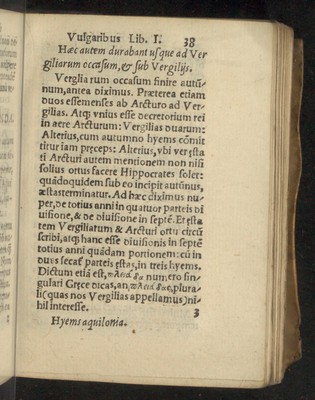 Vulgaribus Lib. I. 38
Hæc autem durabant usque ad Ver
giliarum occasum, & sub Vergilijs.
Vergilia rum occasum finire autũ-
num, antea diximus. Præterea etiam
duos essemenses ab Arcturo ad Ver-
gilias. Atq; vnius esse decretorium rei
in aere Arcturum: Vergilias duarum:
Alterius, cum autumno hyems cõmit
titur iam pręceps: Alterius, vbi ver ęsta
ti Arcturi autem mentionem non nisi
solius ortus facere Hippocrates solet:
quãdoquidem sub eo incipit autũnus,
æstas terminatur. Ad hæc diximus nu-
per, de totius anni in quatuor parteis di
uisione, & de diuisione in septẽ. Et ęsta
tem Vergiliarum & Arcturi ortu circũ
scribi, atq; hanc esse diuisionis in septẽ
totius anni quãdam portionem: cũ in
duas secat parteis ęstas, in treis hyems.
Dictum etiã est, πλειάδα numero sin-
gulari Gręce dicas, an, πλειάδας, plura-
li (quas nos Vergilias appellamus) ni-
hil interesse. 3
Hyems aquilonia.